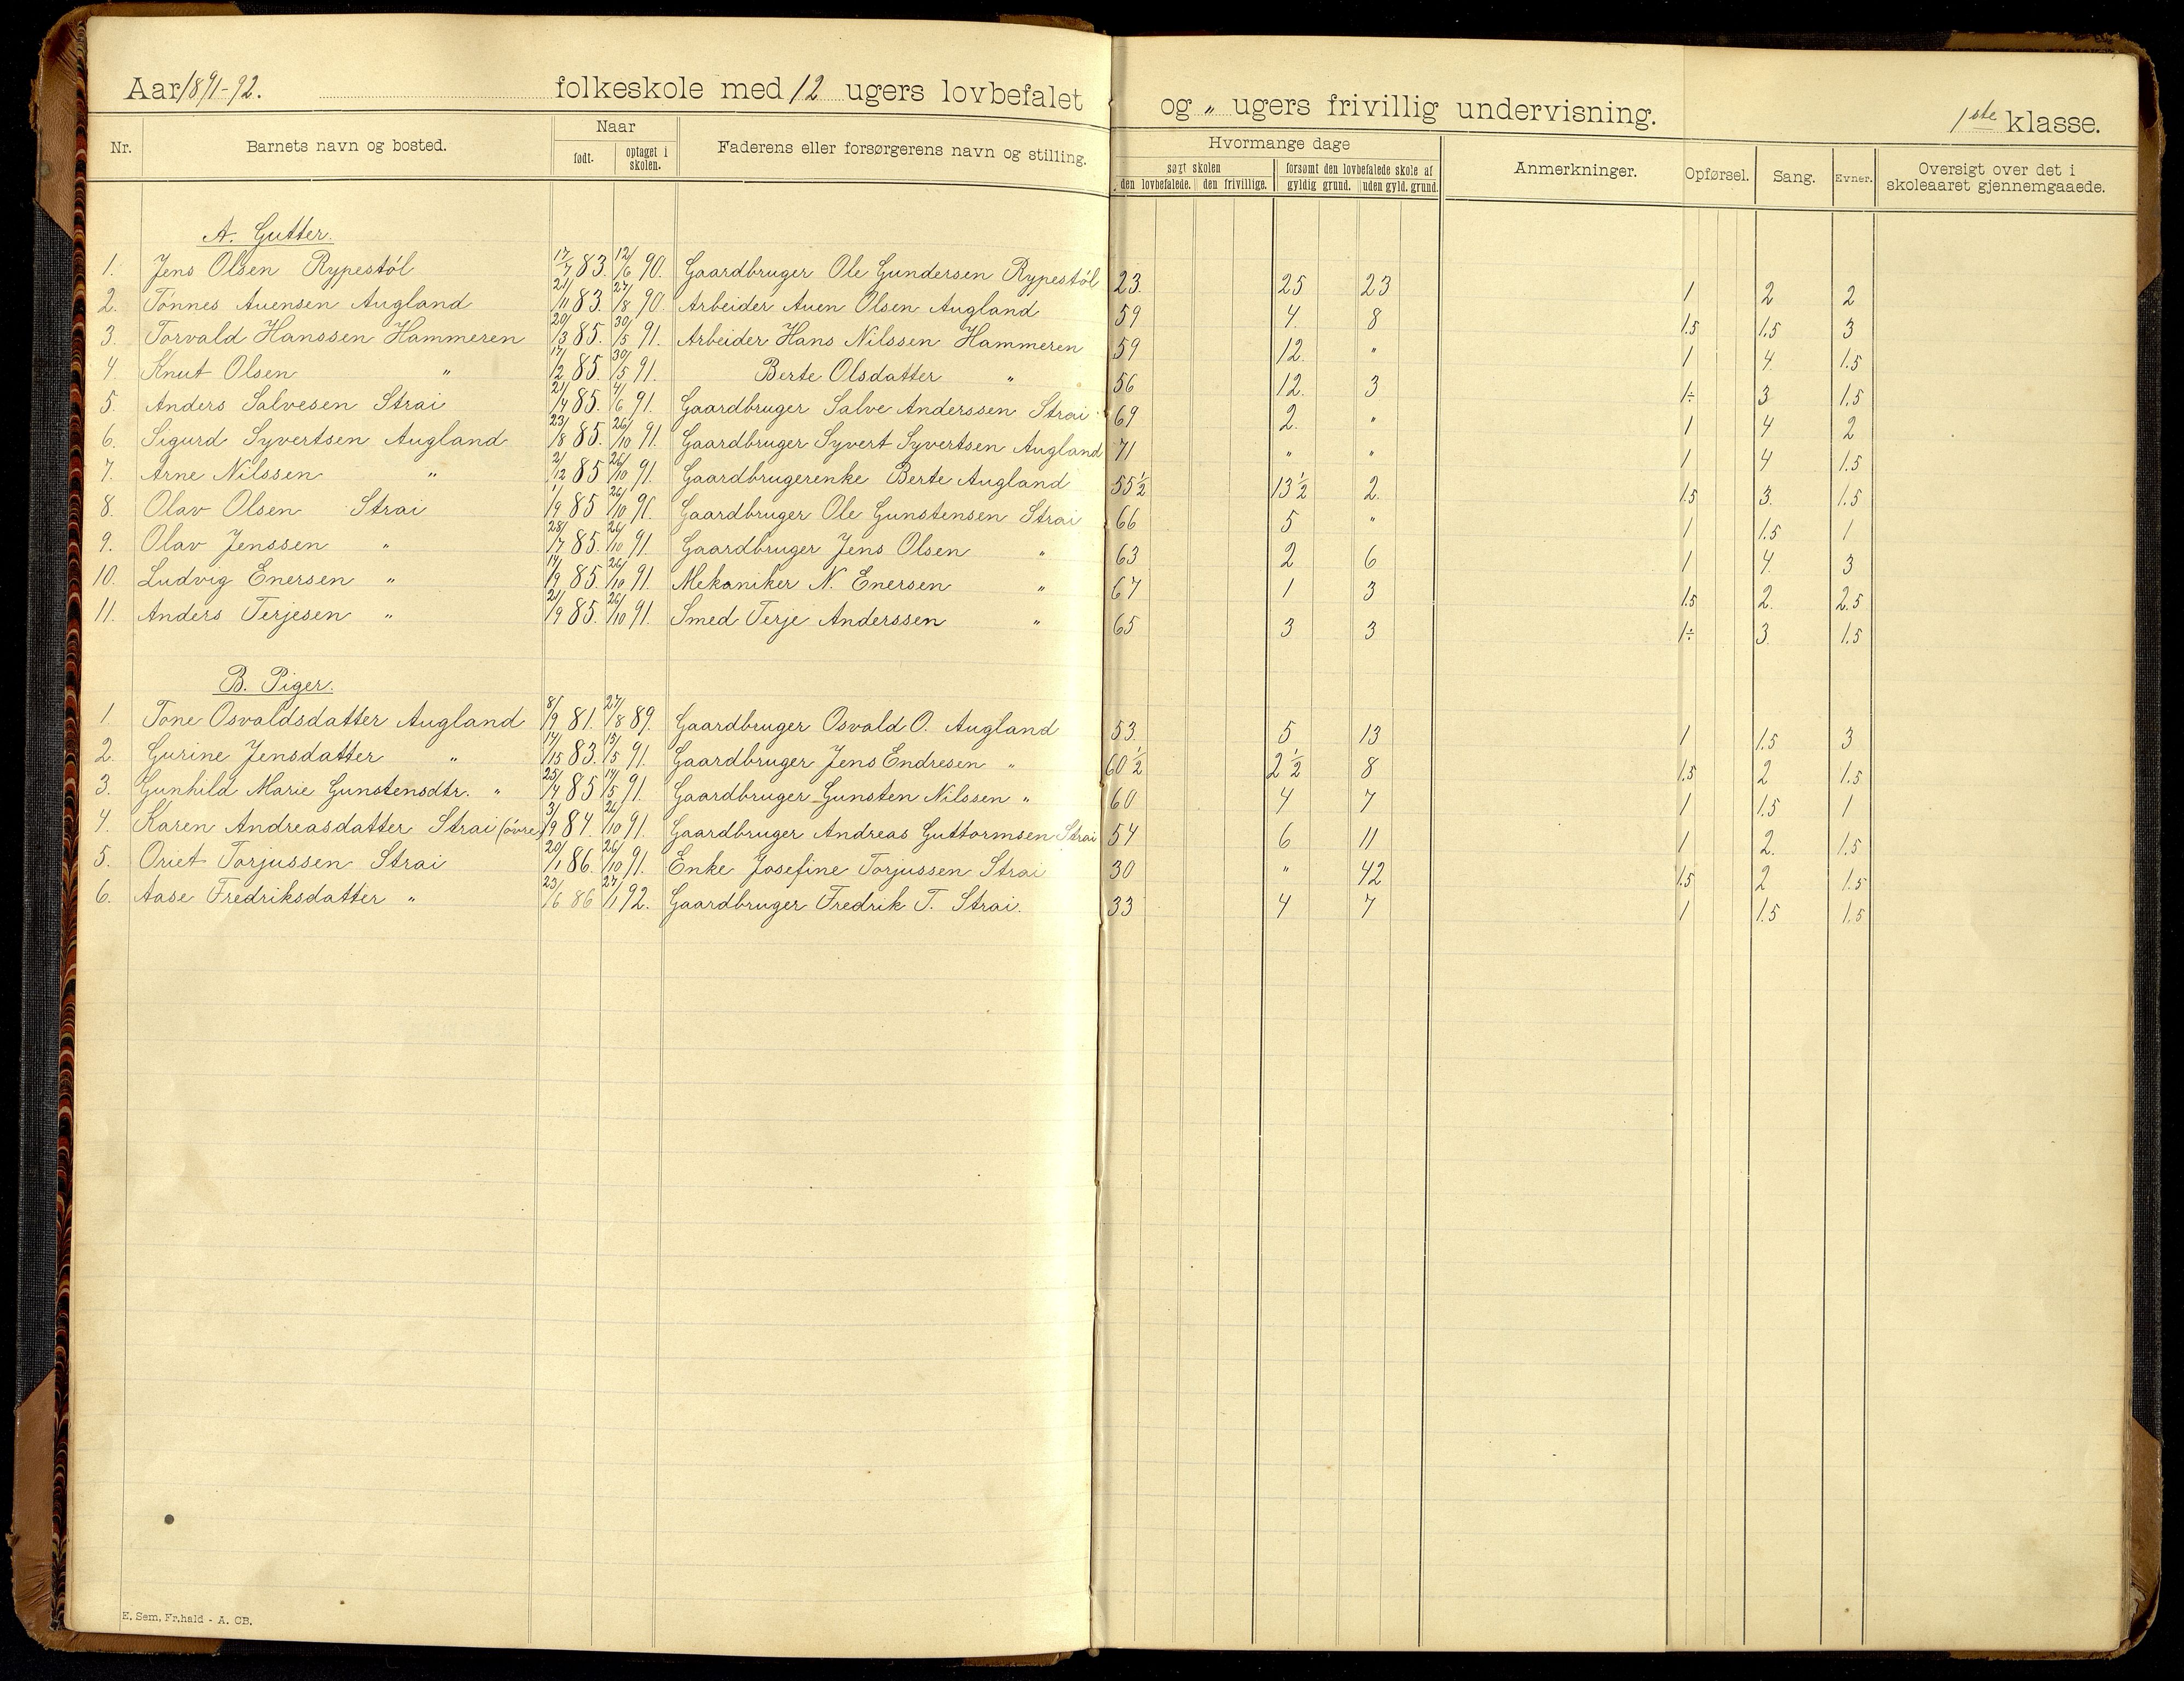 Aar 1891-92. folkeskole med 12 ugers lovbefalet og „ ugers frivillig undervisning. 1ste klasse.
Nr. Barnets navn og bosted. Naar født. optaget i skolen. Faderens eller forsørgerens navn og stilling. Hvormange dage søgt skolen den lovbefalede. den frivillige. forsømt den lovbefalede skole af gyldig grund. uden gyld. grund. Anmerkninger. Opførsel. Sang. Evner. Oversigt over det i skoleaaret gjennemgaaede.
A. Gutter.
1. Jens Olsen Rypestöl 17/7 83. 12/6 90. Gaardbruger Ole Gundersen Rypestöl 23. 25 23 1 2 2
2. Tönnes Auensen Augland 21/11 83. 27/8 90. Arbeider Auen Olsen Augland 59 4. 8 1.5 1.5 3
3. Torvald Hanssen Hammeren 20/3 85. 30/5 91. Arbeider Hans Nilssen Hammeren 59 12. „ 1 4 1.5
4. Knut Olsen „ 17/2 85. 30/5 91. Berte Olsdatter „ 56 12. 3 1÷ 3 1.5
5. Anders Salvesen Strai 21/4 85. 4/6 91. Gaardbruger Salve Anderssen Strai 69 2. „ 1 4 2
6. Sigurd Syvertsen Augland 23/8 85. 26/10 91. Gaardbruger Syvert Syvertsen Augland 71 „ „ 1 4 1.5
7. Arne Nilssen „ 2/12 85 26/10 91. Gaardbrugerenke Berte Augland 55½ 13½ 2. 1.5 3. 1.5
8. Olav Olsen Strai 1/9 85 26/10 91. Gaardbruger Ole Gunstensen Strai 66 5 „ 1 1.5 1
9. Olav Jenssen „ 28/7 85. 26/10 91. Gaardbruger Jens Olsen „ 63 2 6 1 4. 3
10. Ludvig Enersen „ 14/9 85. 26/10 91. Mekaniker N. Enersen „ 67 1 3 1.5 2. 2.5
11. Anders Terjesen „ 21/9 85. 26/10 91. Smed Terje Anderssen „ 65 3 3 1÷ 3. 1.5
B. Piger.
1. Tone Osvaldsdatter Augland 8/9 81. 27/8 89. Gaardbruger Osvald O. Augland 53. 5 13 1 1.5 3
2. Gurine Jensdatter „ 14/15 83. 15/5 91. Gaardbruger Jens Endresen „ 60½ 2½ 8 1.5 2 1.5
3. Gunhild Marie Gunstensdtr. „ 25/4 85 14/5 91. Gaardbruger Gunsten Nilssen „ 60 4 7 1 1.5 1
4. Karen Andreasdatter Strai (övre) 3/9 84. 26/10 91. Gaardbruger Andreas Guttormsen Strai 54 6 11 1 2. 1.5
5. Oriet Torjussen Strai 20/1 86. 26/10 91. Enke Josefine Torjussen Strai 30 „ 42 1.5 2 1.5
6. Aase Fredriksdatter „ 23/6 86 27/1 92. Gaardbruger Fredrik T. Strai. 33 4 7 1 1.5 1.5
E. Sem, Fr.hald - A. CB.